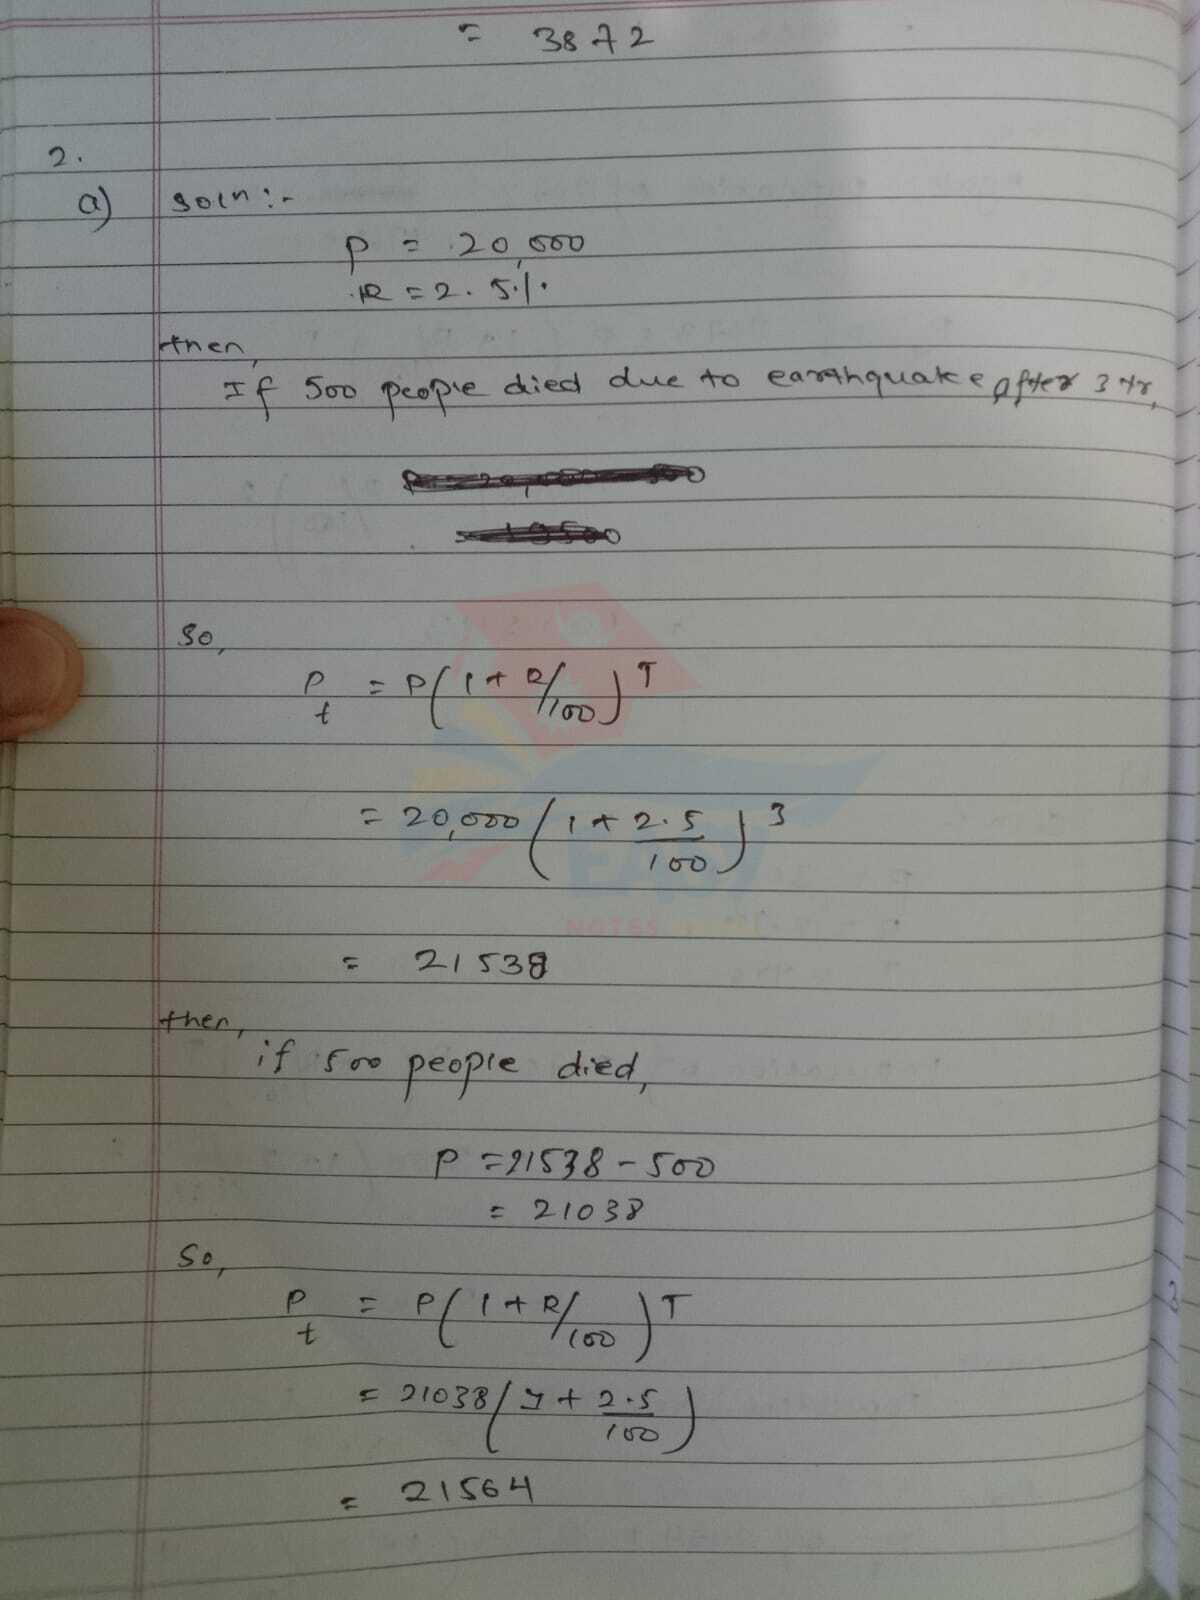 = 3872
2.
a) soln:-
P = 20,000
R = 2.5%
then,
If 500 people died due to earthquake after 3 yr,
So,
Pt = P(1+R/100)^T
= 20,000(1+2.5/100)^3
= 21538
then,
if 500 people died,
P = 21538 - 500
= 21038
So,
Pt = P(1+R/100)^T
= 21038(1+2.5/100)
= 21564
EASY
NOTES